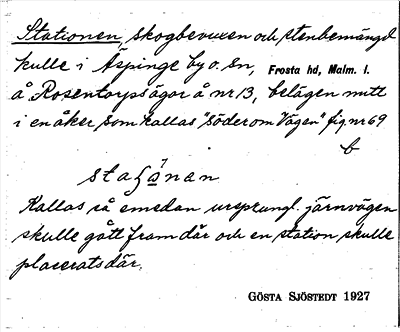 Stationen, skogbevuxen och stenbemängd
kulle i Äspinge by o. sn, Frosta hd, Malm. l.
å Rosentorpsägor å nr 13, belägen mitt
i en åker, som kallas "Söder om Vägen" fig. nr 69
b
Kallas så emedan ursprungl. järnvägen
skulle gått fram där och en station skulle
placerats där.
GÖSTA SJÖSTEDT 1927